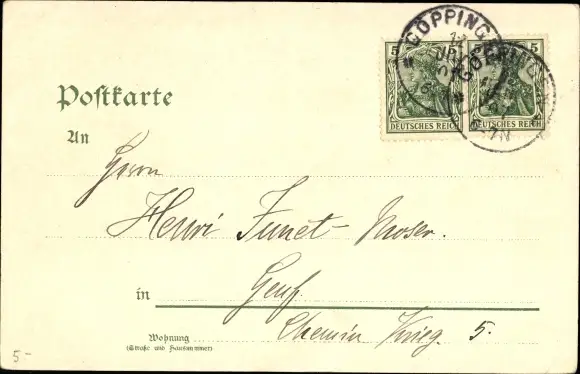 GÖPPINGEN
GOEPPINGEN
5 5
DEUTSCHES REICH DEUTSCHES REICH
Postkarte
An
Herrn
Henri Junet-Moser.
in Genf.
Chemin Krieg 5.
Wohnung
(Straße und Hausnummer)
5-